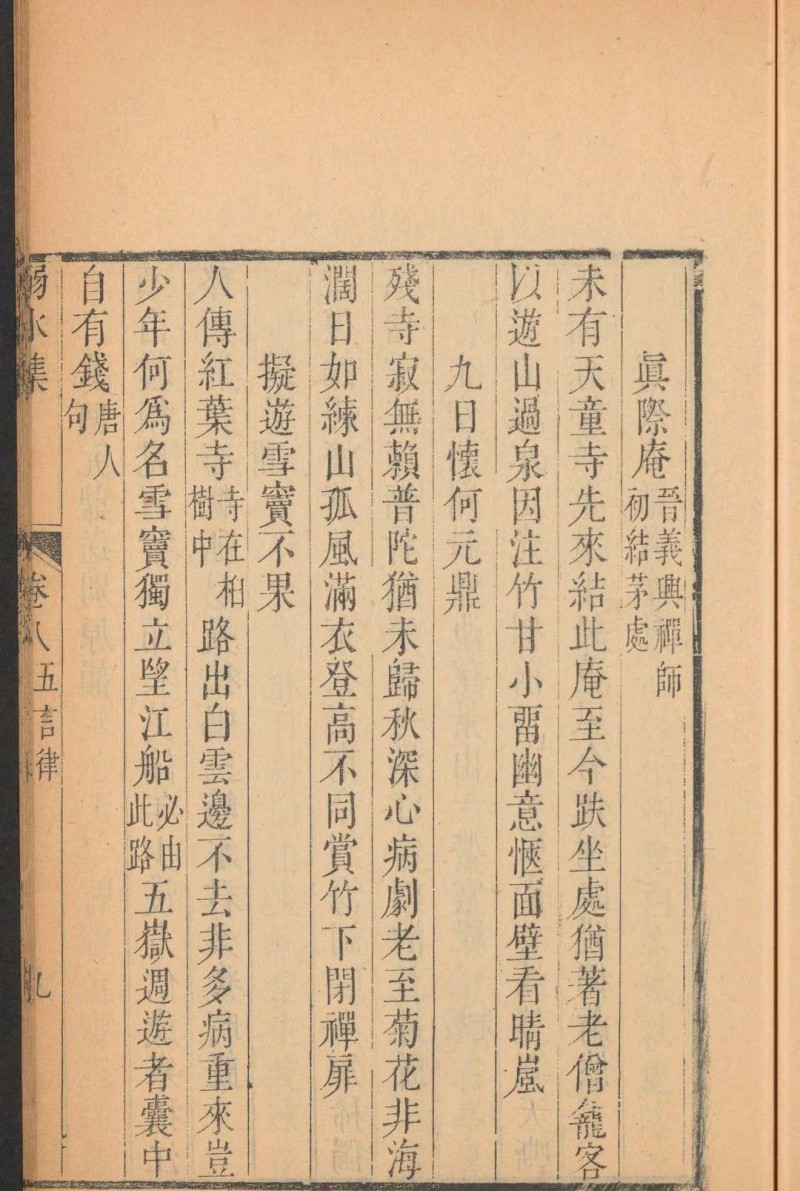 眞際庵晉義興禪師初結茅處
未有天童寺先來結此庵至今趺坐處猶著老僧龕客
以遊山過泉因注竹甘小畱幽意愜面壁看晴嵐
九日懷何元鼎
殘寺寂無賴普陀猶未歸秋深心病劇老至菊花非海
濶日如練山孤風滿衣登高不同賞竹下閉禪扉
擬遊雪竇不果
人傳紅葉寺寺在桕樹中路出白雲邊不去非多病重來豈
少年何爲名雪竇獨立朢江船必由此路五嶽週遊者囊中
自有錢唐人句
弱水集 卷八 五言律 九